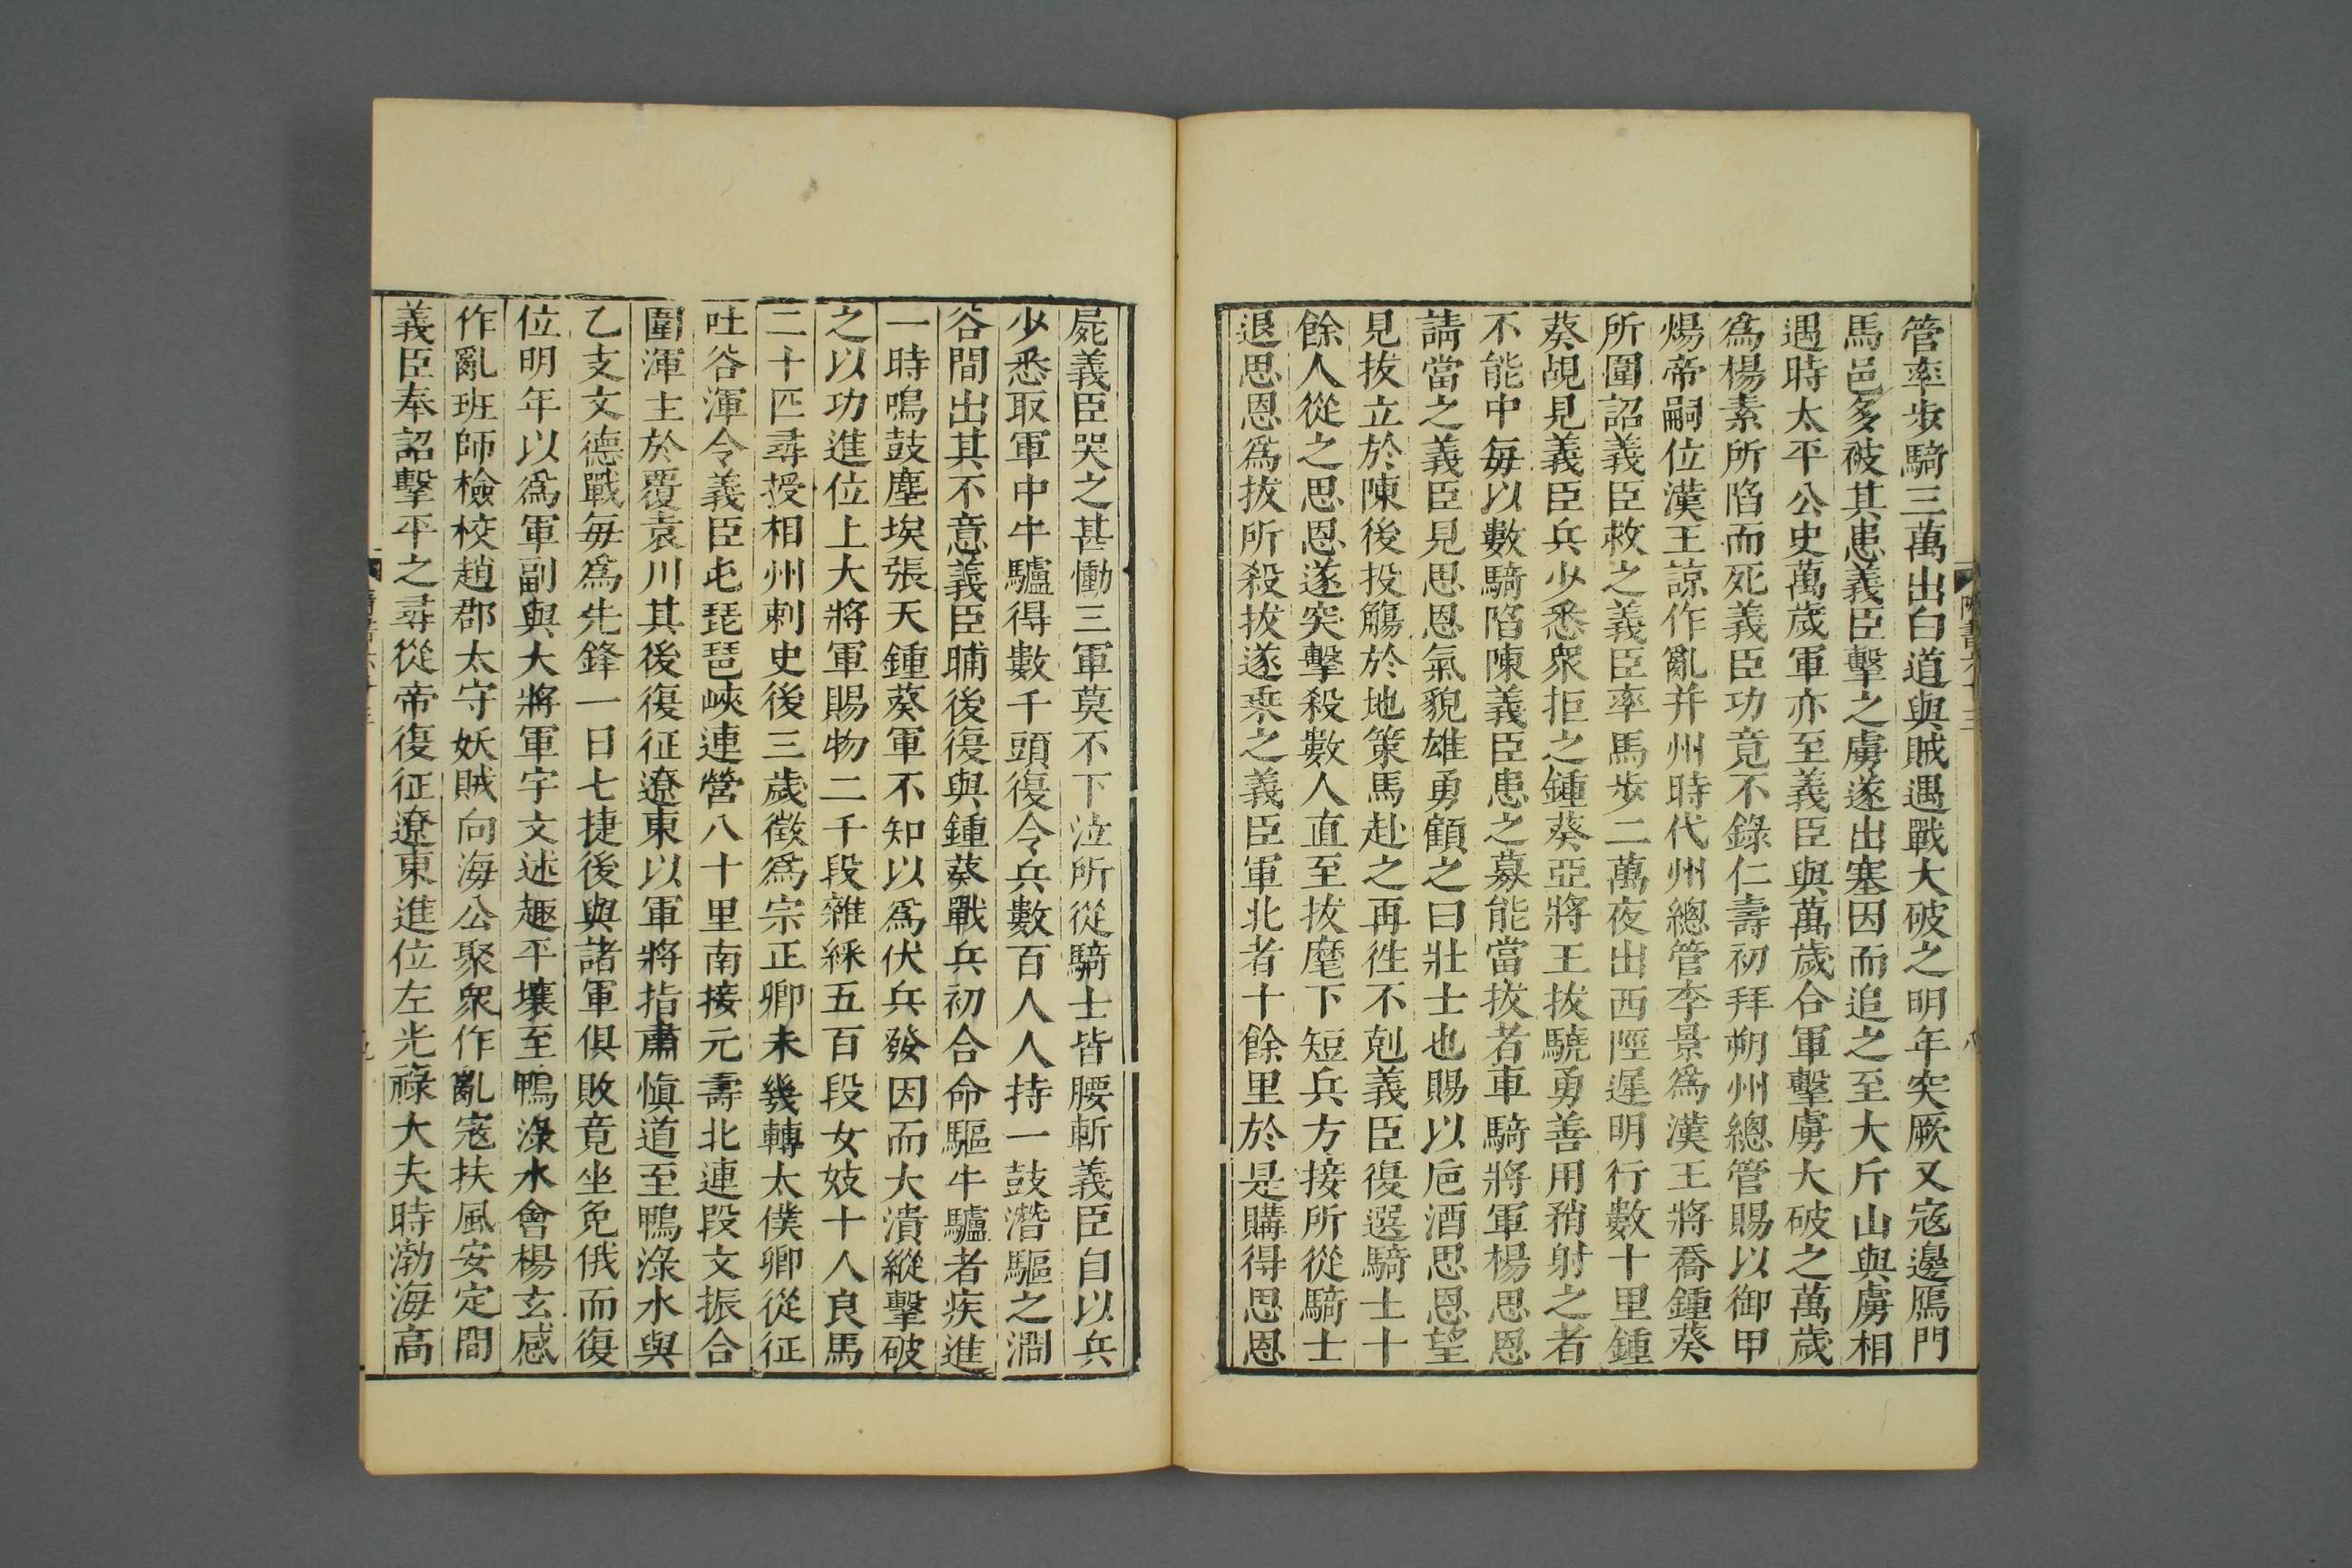 管率步騎三萬出白道與賊遇戰大破之明年突厥又寇邊鴈門
馬邑多被其患義臣擊之虜遂出塞因而追之至大斤山與虜相
遇時太平公史萬歲軍亦至義臣與萬歲合軍擊虜大破之萬歲
爲楊素所陷而死義臣功竟不錄仁壽初拜朔州總管賜以御甲
煬帝嗣位漢王諒作亂并州時代州總管李景爲漢王將喬鍾葵
所圍詔義臣救之義臣率馬步二萬夜出西陘遲明行數十里鍾
葵覘見義臣兵少悉眾拒之鍾葵亞將王拔驍勇善用矟射之者
不能中每以數騎陷陳義臣患之募能當拔者車騎將軍楊思恩
請當之義臣見思恩氣貌雄勇顧之曰壯士也賜以巵酒思恩望
見拔立於陳後投觴於地策馬赴之再徃不剋義臣復選騎士十
餘人從之思恩遂突擊殺數人直至拔麾下短兵方接所從騎士
退思恩爲拔所殺拔遂乘之義臣軍北者十餘里於是購得思恩
屍義臣哭之甚慟三軍莫不下泣所從騎士皆腰斬義臣自以兵
少悉取軍中牛驢得數千頭復令兵數百人人持一鼓潛驅之澗
谷間出其不意義臣晡後復與鍾葵戰兵初合命驅牛驢者疾進
一時鳴鼓塵埃張天鍾葵軍不知以爲伏兵發因而大潰縱擊破
之以功進位上大將軍賜物二千段雜綵五百段女妓十人良馬
二十匹尋授相州刺史後三歲徵爲宗正卿未幾轉太僕卿從征
吐谷渾令義臣屯琵琶峽連營八十里南接元壽北連段文振合
圍渾主於覆袁川其後復征遼東以軍將指肅慎道至鴨淥水與
乙支文德戰每爲先鋒一日七捷後與諸軍俱敗竟坐免俄而復
位明年以爲軍副與大將軍宇文述趣平壤至鴨淥水會楊玄感
作亂班師檢校趙郡太守妖賊向海公聚眾作亂寇扶風安定間
義臣奉詔擊平之尋從帝復征遼東進位左光祿大夫時渤海高